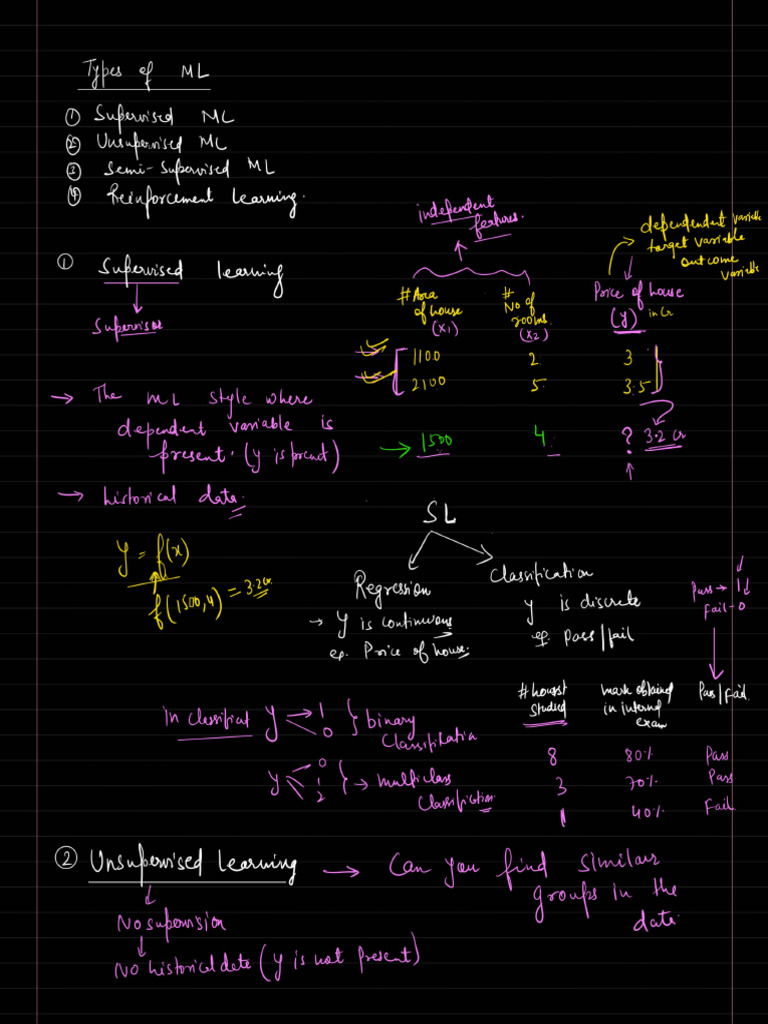 Types of ML
① Supervised ML
② Unsupervised ML
③ Semi-Supervised ML
④ Reinforcement Learning.
① Supervised Learning
Supervisor
→ The ML style where
dependent variable is
present. (y is present)
→ historical data.
y = f(x)
f(1500,4) = 3.2 cr
independent
features
dependendent variable
target variable
outcome
variable
# Area
of house
(x1)
#
No of
rooms
(x2)
Price of house
(y) in Cr
1100 2 3
2100 5 3.5
→ 1500 4 ? 3.2 cr
SL
Regression
→ y is continuous
eg. Price of house.
Classification
y is discrete
eg. pass/fail
Pass → 1
fail - 0
In Classificat y → 1
0
} binary
Classification
y 0
1
2
} → multiclass
Classification
Studied
mark obtained
in internal
exam
Pass/Fail
8 80% Pass
3 70% Pass
1 40% Fail
② Unsupervised Learning → Can you find similar
groups in the
data.
No supervision
No historical data (y is not present)